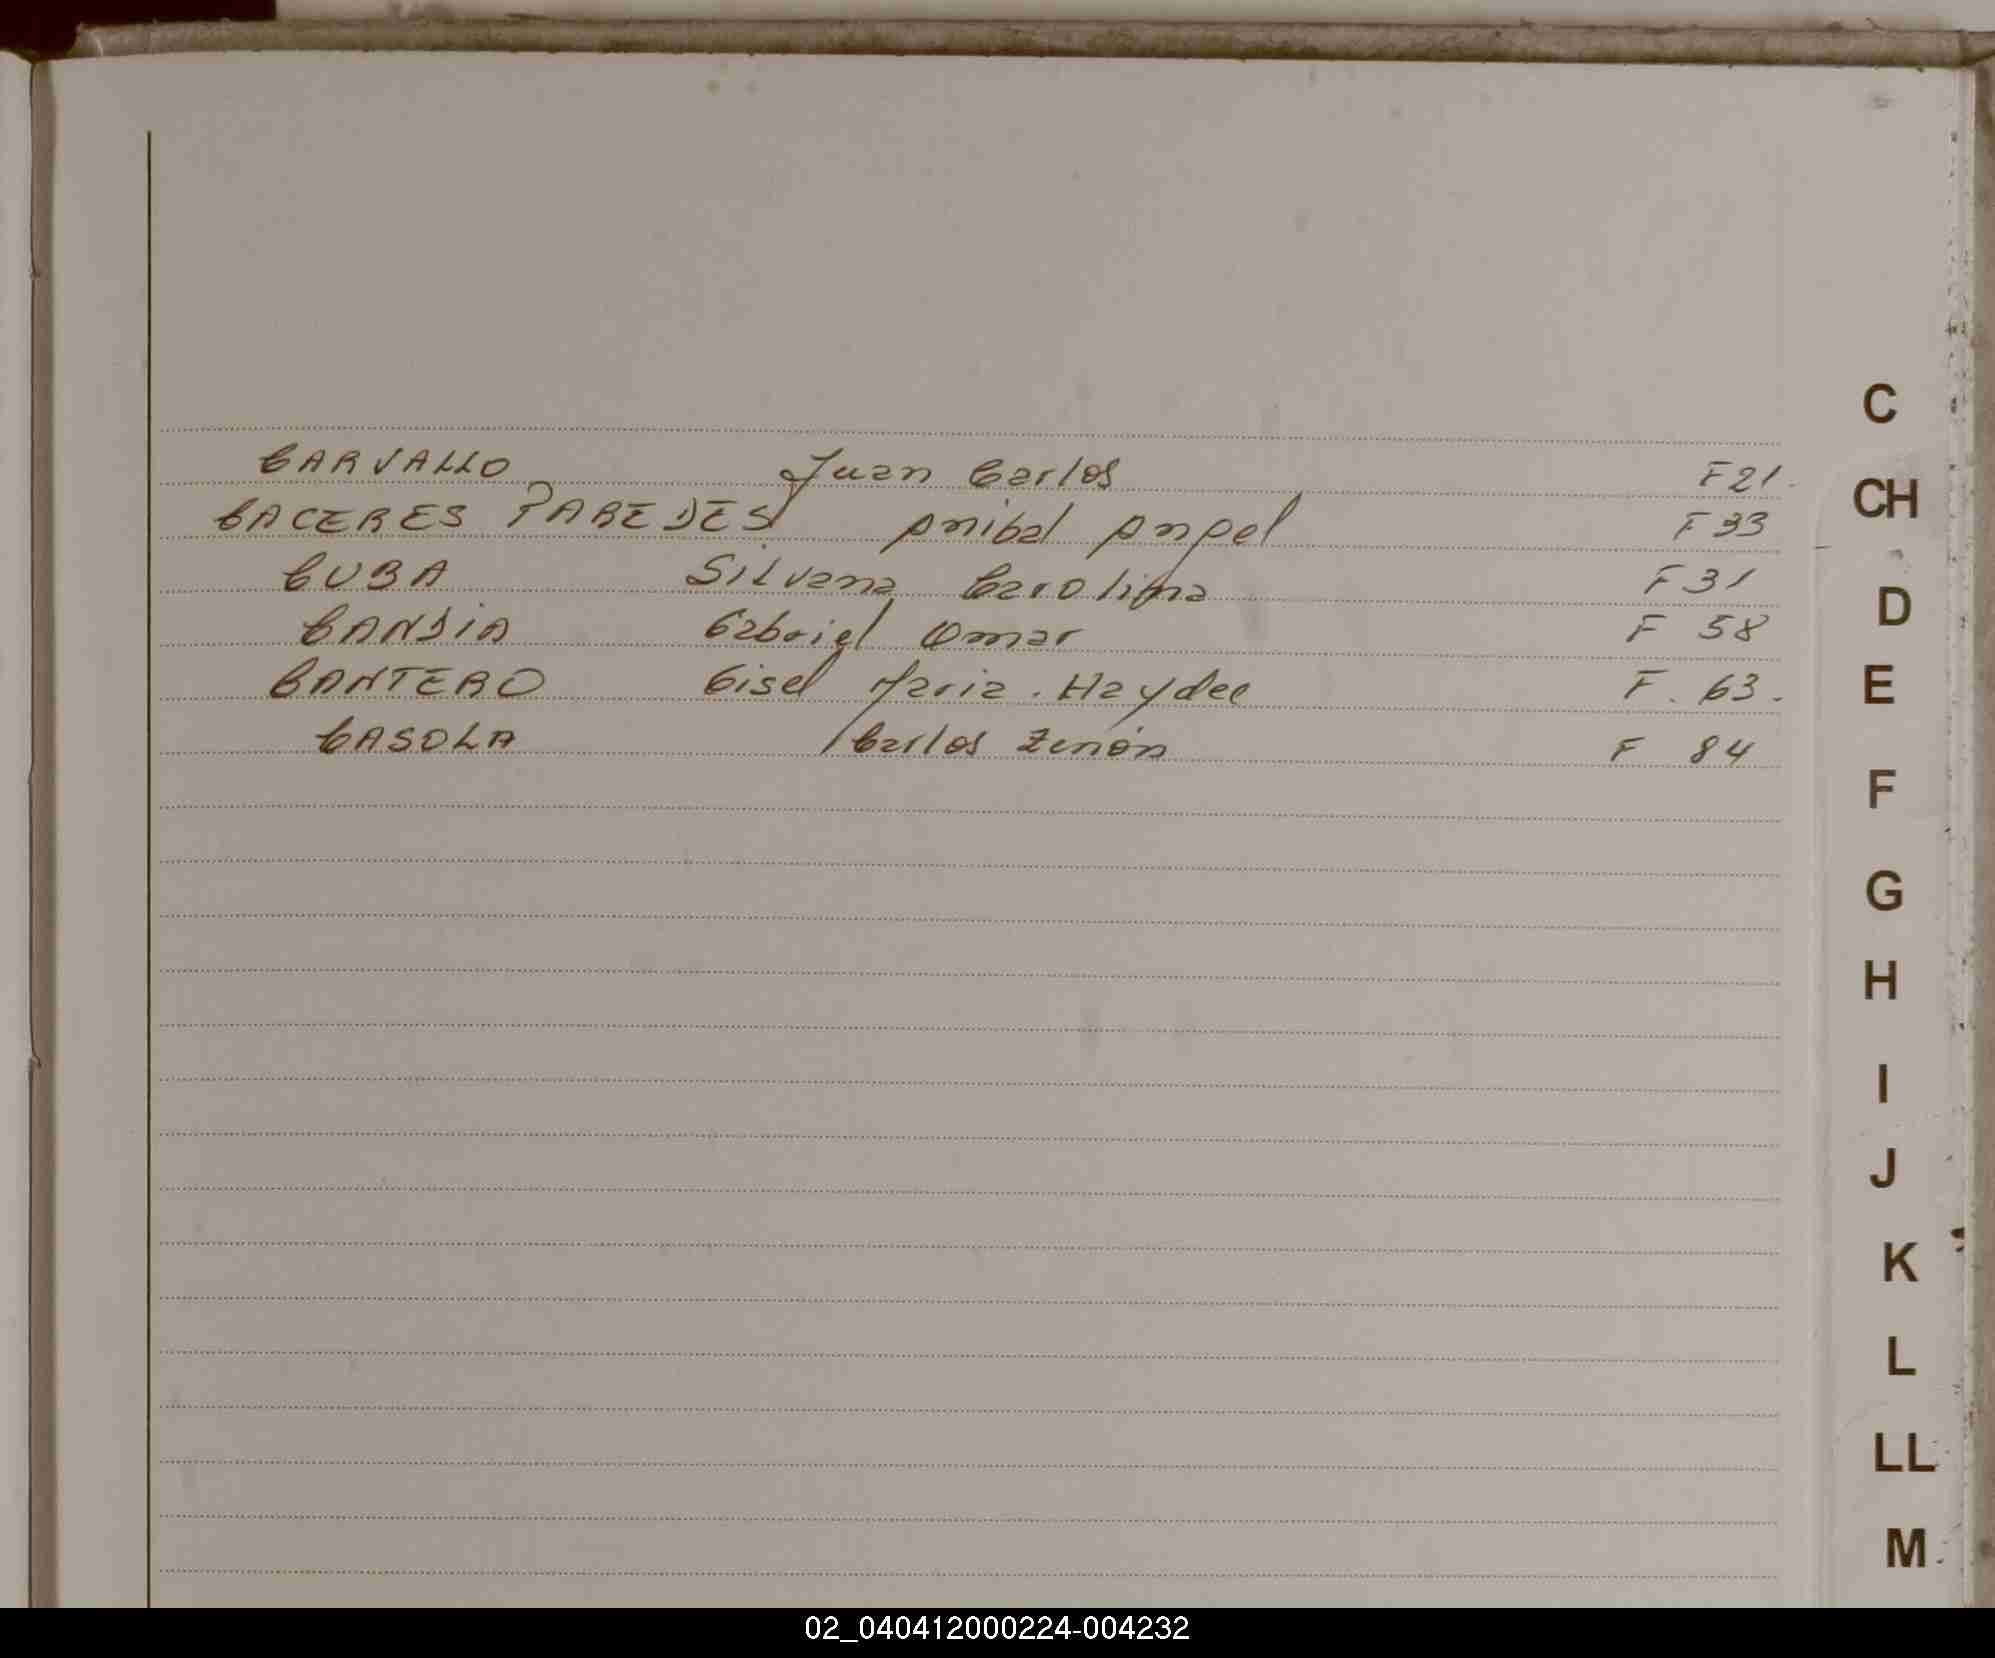 CARVALLO Juan Carlos F21.
CACERES PAREDES Anibal Angel F33
CUBA Silvana Carolina F31
CANDIA Gabriel Omar F 58
CANTERO Gisel Maria. Haydee F. 63.
CASOLA Carlos Zenón F 84
C
CH
D
E
F
G
H
I
J
K
L
LL
M
02_040412000224-004232